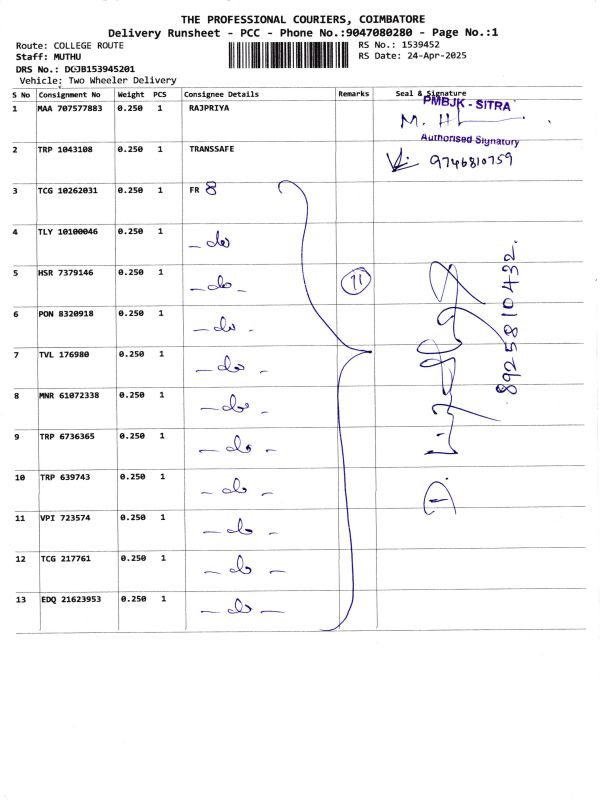 THE PROFESSIONAL COURIERS, COIMBATORE
Delivery Runsheet - PCC - Phone No.:9047080280 - Page No.:1
Route: COLLEGE ROUTE RS No.: 1539452
Staff: MUTHU RS Date: 24-Apr-2025
DRS No.: DGJB153945201
Vehicle: Two Wheeler Delivery
S No Consignment No Weight PCS Consignee Details Remarks Seal & Signature
1 MAA 707577883 0.250 1 RAJPRIYA
PMBJK - SITRA
Authorised Signatory
2 TRP 1043108 0.250 1 TRANSSAFE 9746810759
3 TCG 10262031 0.250 1 FR 8
4 TLY 10100046 0.250 1 - do
5 HSR 7379146 0.250 1 - do - 11
6 PON 8320918 0.250 1 - do -
7 TVL 176980 0.250 1 - do -
8 MNR 61072338 0.250 1 - do -
9 TRP 6736365 0.250 1 - do -
10 TRP 639743 0.250 1 - do -
11 VPI 723574 0.250 1 - do -
12 TCG 217761 0.250 1 - do -
13 EDQ 21623953 0.250 1 - do -
8925810432.